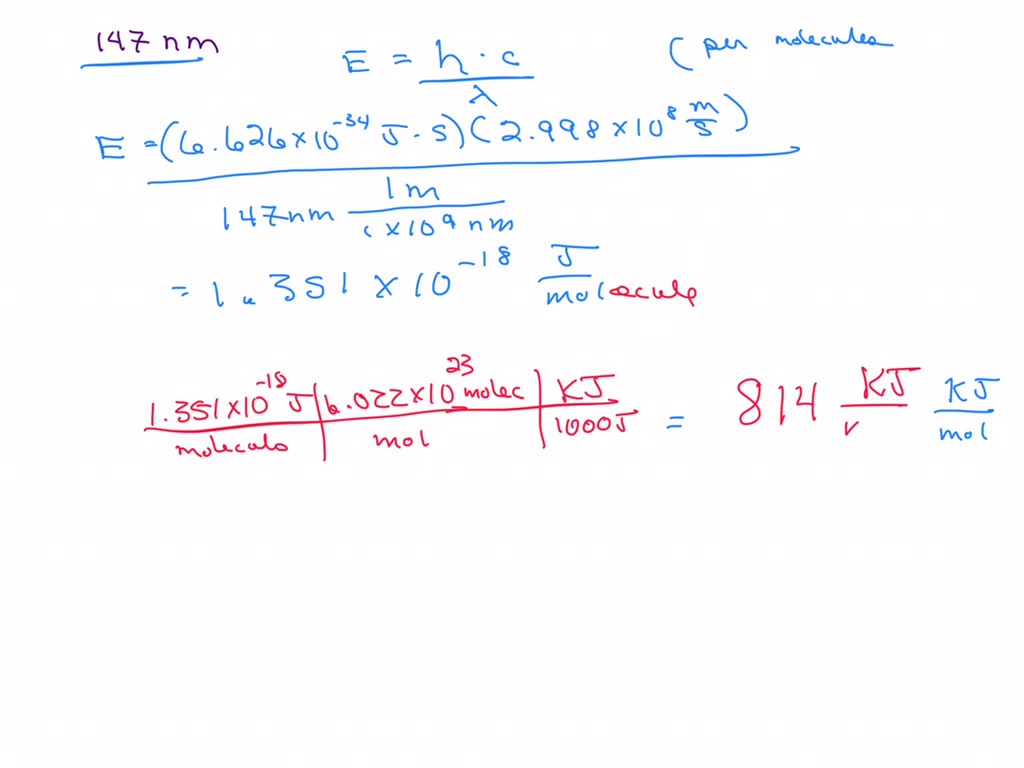 147 nm
E = h · c / λ (per molecules
E = (6.626 × 10⁻³⁴ J · S)(2.998 × 10⁸ m/s)
147nm 1 m / 1 × 10⁹ nm
= 1.351 × 10⁻¹⁸ J / molecule
1.351 × 10⁻¹⁸ J / molecule | 6.022 × 10²³ molec / mol | KJ / 1000J = 814 KJ / KJ / mol